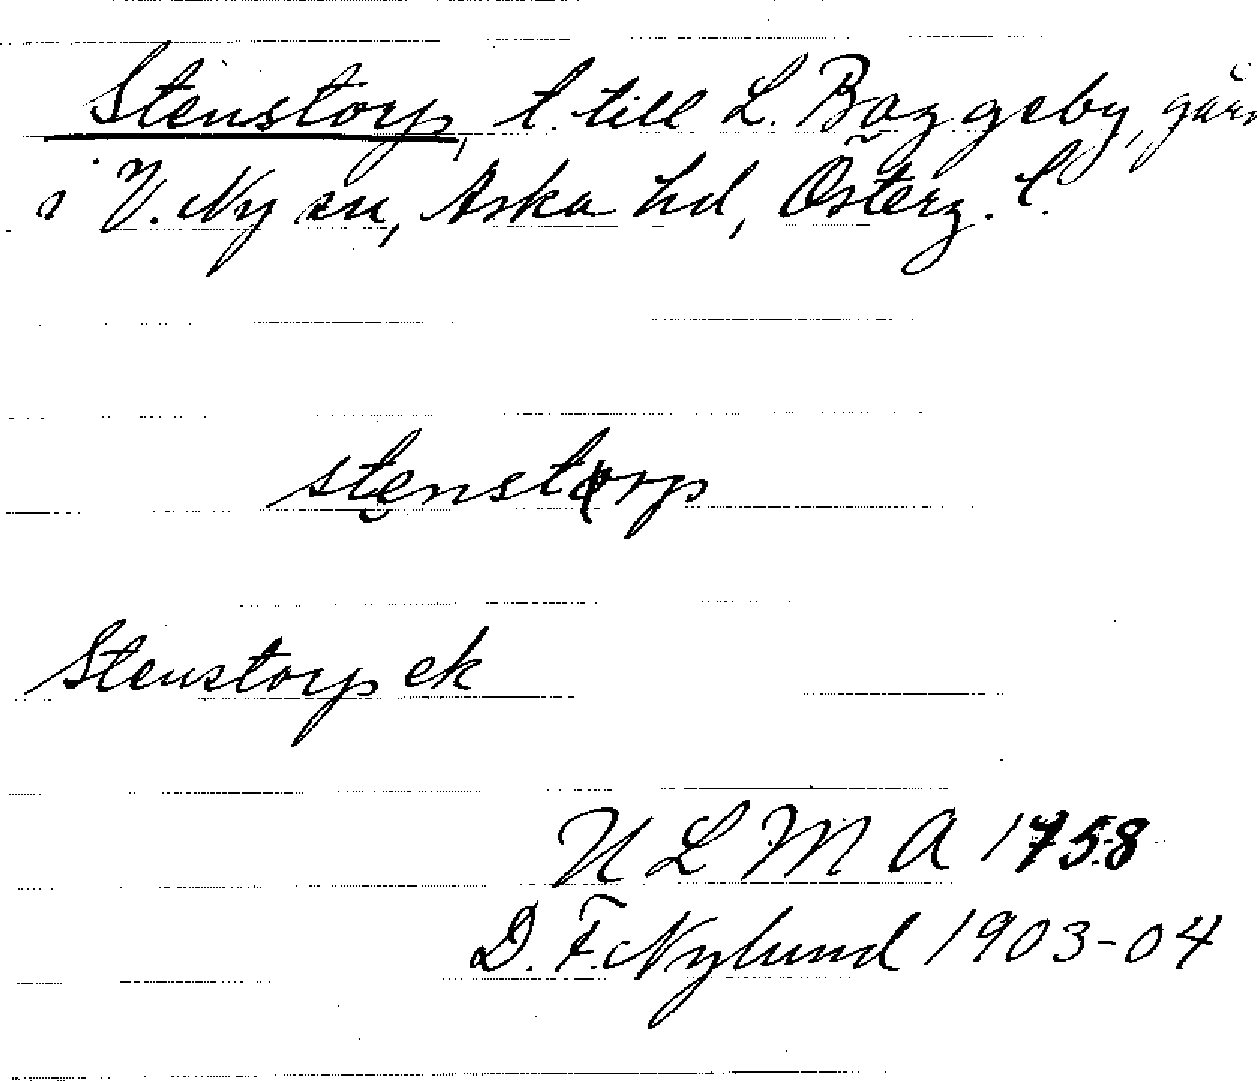 Stenstorp, t. till L. Baggeby, går
i V. Ny sn, Aska hd, Österg. l.
stenstorp
Stenstorp ek
U L M A 1758
D. F. Nylund 1903-04